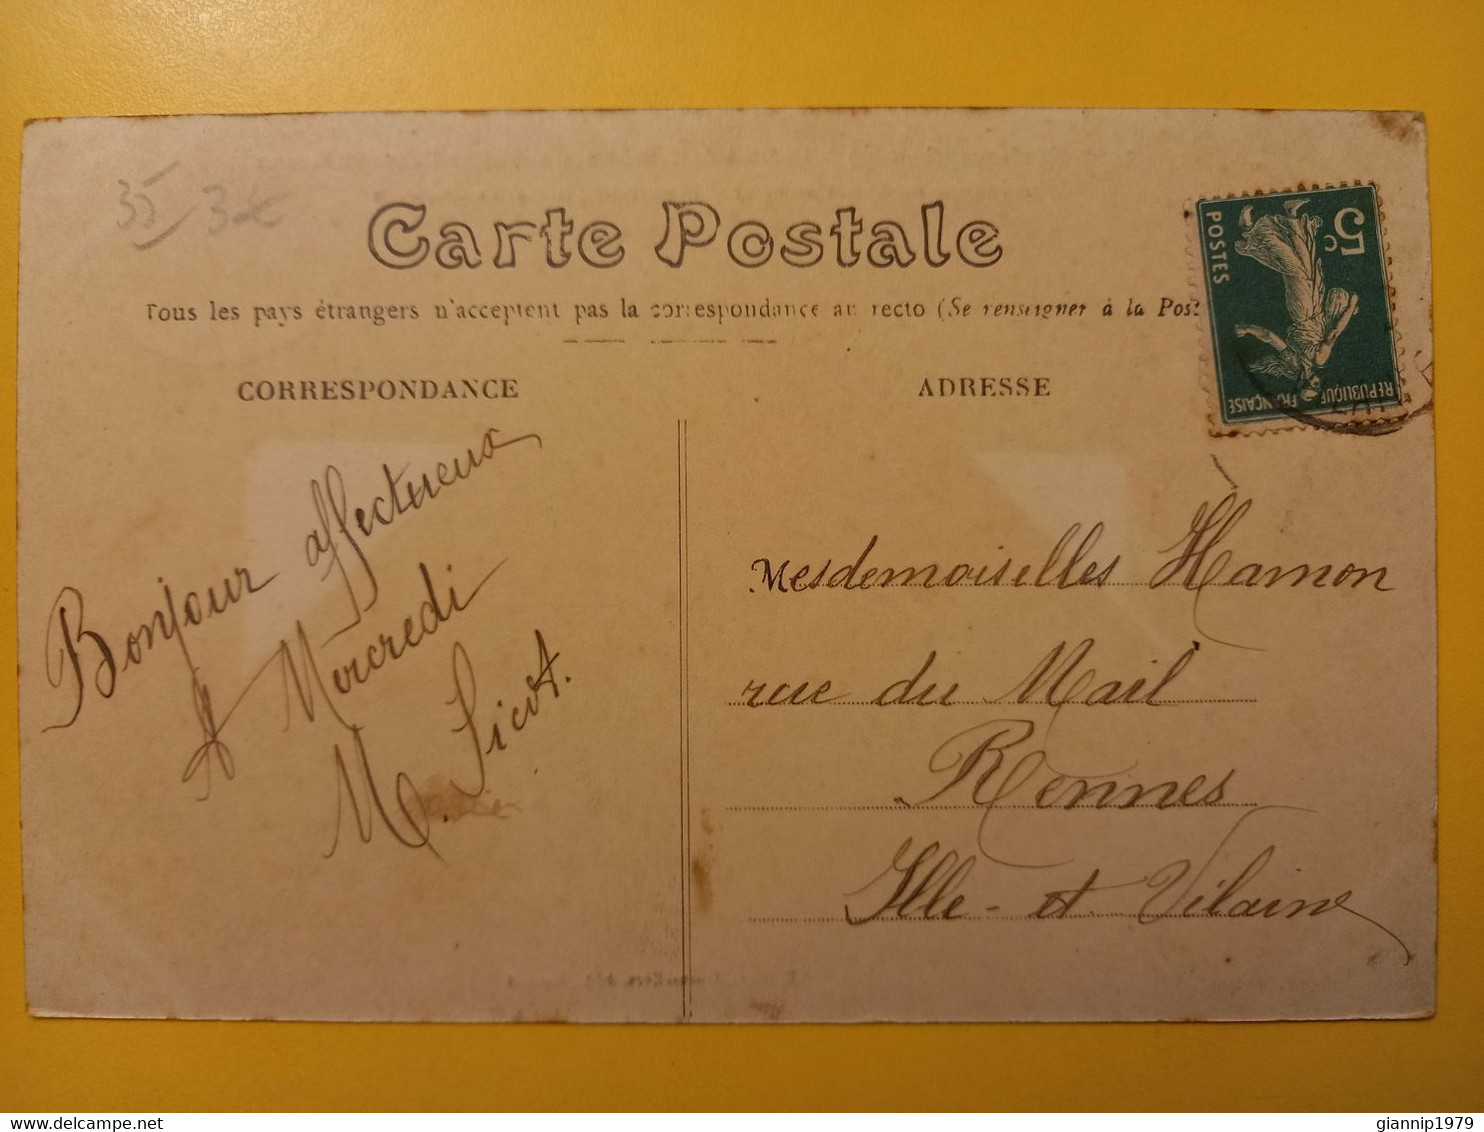 35 3€
Carte Postale
Tous les pays étrangers n'acceptent pas la correspondance au recto (Se renseigner à la Post
CORRESPONDANCE
ADRESSE
5c
POSTES
REPUBLIQUE FRANÇAISE
Bonjour affectueux
A Mercredi
M. Sicot.
Mesdemoiselles Hamon
rue du Mail
Rennes
Ille-et Vilaine
delcampe.net
giannip1979